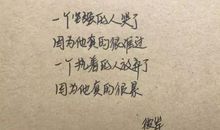 一个坚强的人哭了
因为他真的很难过
一个执着的人放弃了
因为他真的很累